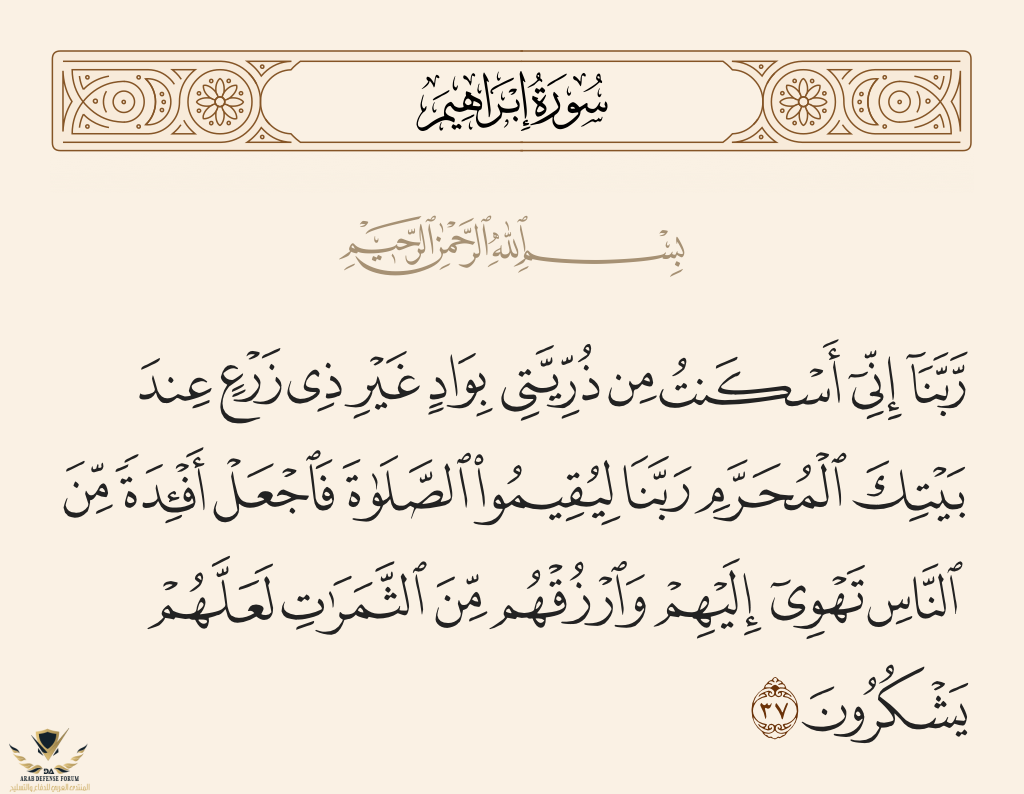 سُورَةُ إِبۡرَاهِيمَ
بِسۡمِ ٱللَّهِ ٱلرَّحۡمَٰنِ ٱلرَّحِيمِ
رَّبَّنَآ إِنِّيٓ أَسۡكَنتُ مِن ذُرِّيَّتِي بِوَادٍ غَيۡرِ ذِي زَرۡعٍ عِندَ
بَيۡتِكَ ٱلۡمُحَرَّمِ رَبَّنَا لِيُقِيمُواْ ٱلصَّلَوٰةَ فَٱجۡعَلۡ أَفۡـِٔدَةٗ مِّنَ
ٱلنَّاسِ تَهۡوِيٓ إِلَيۡهِمۡ وَٱرۡزُقۡهُم مِّنَ ٱلثَّمَرَٰتِ لَعَلَّهُمۡ
يَشۡكُرُونَ ٣٧
DA
ARAB DEFENSE FORUM
المنتدى العربي للدفاع والتسليح